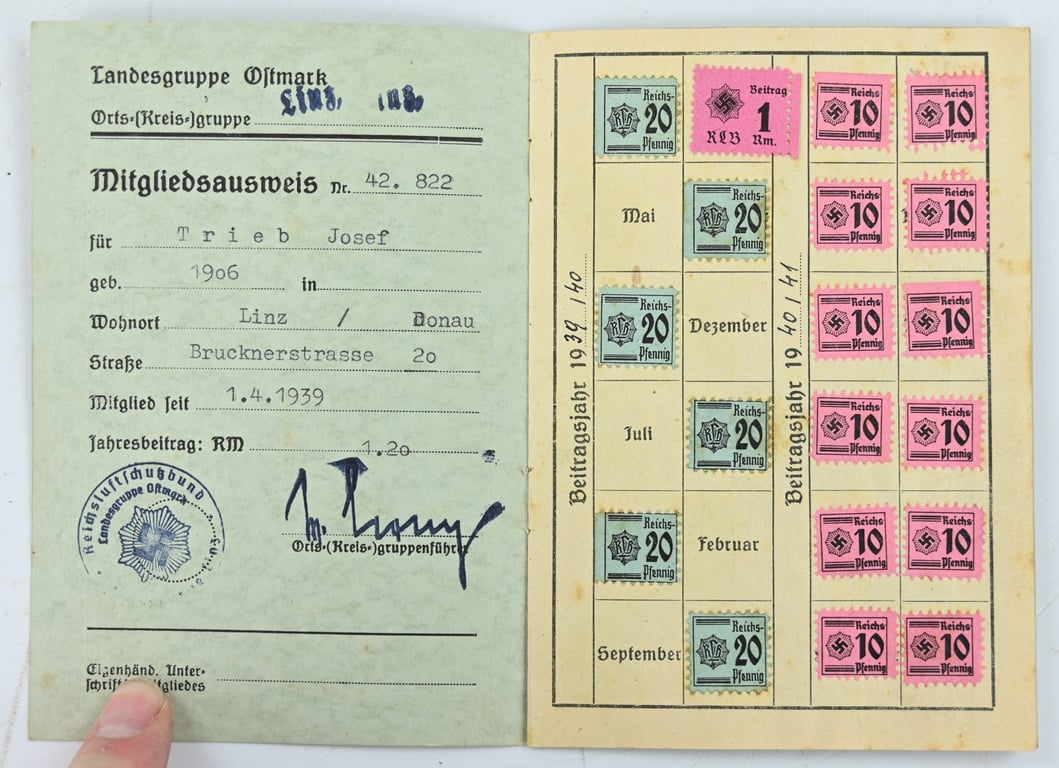 Landesgruppe Ostmark
Linz,
Orts-(Kreis-)gruppe
Mitgliedsausweis Nr. 42. 822
für Trieb Josef
geb. 1906 in
Wohnort Linz / Donau
Straße Brucknerstrasse 20
Mitglied seit 1.4.1939
Jahresbeitrag: RM 1.20
Reichsluftschutzbund
Landesgruppe Ostmark
Orts-(Kreis-)gruppenführer
Eigenhänd. Unter-
Beitragsjahr 1939/40
Reichs-
20
Pfennig
Mai
Reichs-
20
Pfennig
Juli
Reichs-
20
Pfennig
September
Beitrag
1
RLB Rm.
Reichs-
20
Pfennig
Dezember
Reichs-
20
Pfennig
Februar
Reichs-
20
Pfennig
Beitragsjahr 1940/41
Reichs-
10
Pfennig
Reichs-
10
Pfennig
Reichs-
10
Pfennig
Reichs-
10
Pfennig
Reichs-
10
Pfennig
Reichs-
10
Pfennig
Reichs-
10
Pfennig
Reichs-
10
Pfennig
Reichs-
10
Pfennig
Reichs-
10
Pfennig
Reichs-
10
Pfennig
Reichs-
10
Pfennig